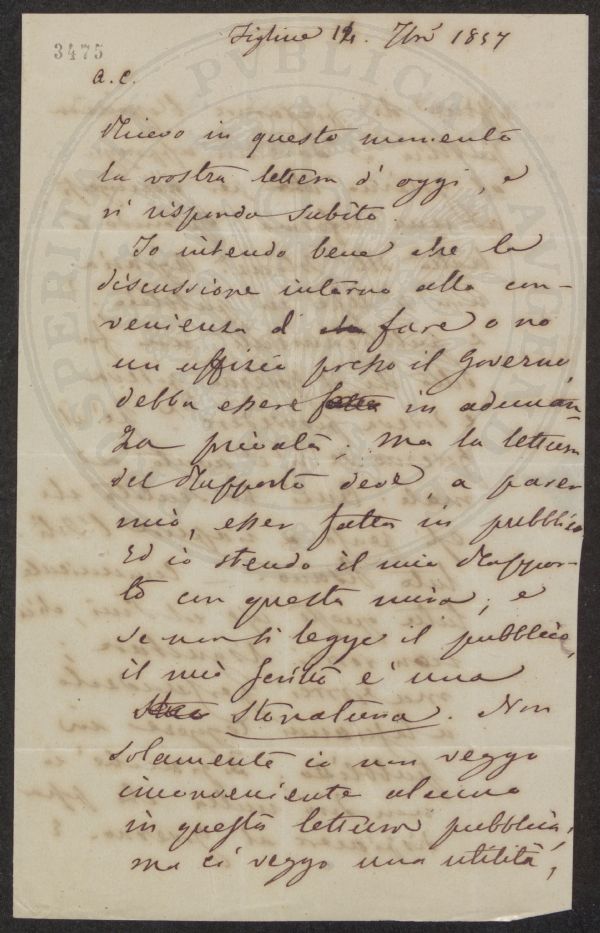 3475
Figline 14. 7bre 1857
a.c.
Ricevo in questo momento
la vostra lettera d' oggi, e
vi rispondo subito.
Io intendo bene che la
discussione intorno alla con-
venienza d' fare o no
un uffizio presso il Governo,
debba essere fatta in adunan-
za privata; ma la lettura
del Rapporto deve, a parer
mio, esser fatta in pubblico.
Ed io stendo il mio Rappor-
to con questa mira; e
se non si legge il pubblico,
il mio scritto è una
stonatura. Non
solamente io non veggo
inconveniente alcuno
in questa lettura pubblica;
ma ci veggo una utilità,